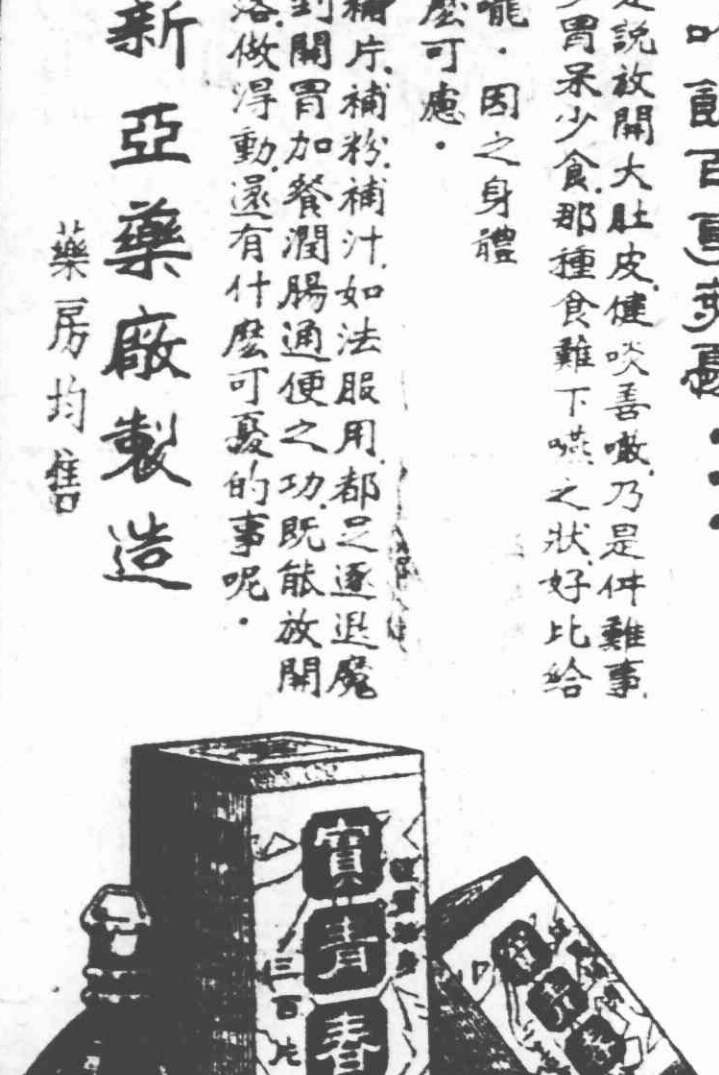 食百
是說放開大肚皮.健啖善噉.乃是件難事.
胃呆少食.那種食難下嚥之狀.好比給
嚨.因之身體
麼可慮.
補片.補粉.補汁.如法服用.都足逐退魔
到開胃加餐潤腸通便之功.既能放開
落.做得動.還有什麼可憂的事呢.
新亞藥廠製造
藥房均售
寶青春
三百片
寶青春